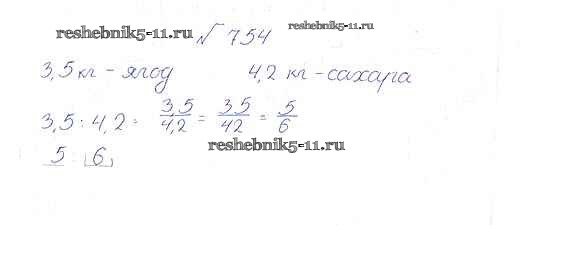 reshebnik5-11.ru № 754 reshebnik5-11.ru
3,5 кг - ягод 4,2 кг - сахара
3,5 : 4,2 = 3,5/4,2 = 35/42 = 5/6
5 : 6
reshebnik5-11.ru